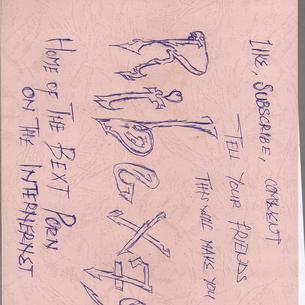 LIKE, SUBSCRIBE, COMMENT
TELL YOUR FRIENDS
THIS WILL MAKE YOU
HOME OF THE BEXT PORN
ON THE INTERNERNET